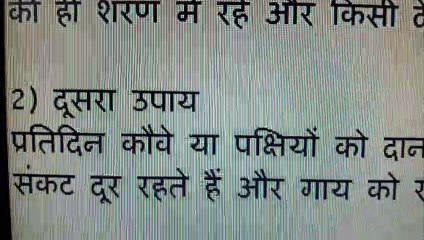 की ही शरण में रहें और किसी
2) दूसरा उपाय
प्रतिदिन कौवे या पक्षियों को
संकट दूर रहते हैं और गाय को